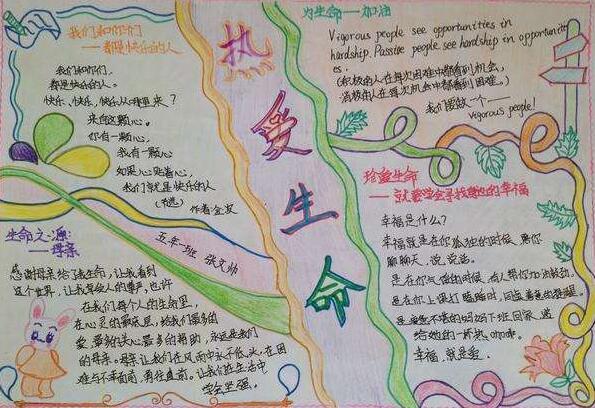 我们和你们
——都是快乐的人
我们和你们，
都是快乐的人。
快乐，快乐，快乐从哪里来？
来自这颗心。
你有一颗心
我有一颗心
如果心贴着心，
我们就是快乐的人
作者：金波
热
爱
生
命
五年一班 张文帅
生命之源：
——母亲
感谢母亲给了我生命，让我看到
这个世界，让我享受人的尊严，也许
在我们每个人的生命里，
在心灵的最底层，给我们最多的
爱，最多的关心最多的帮助，永远是我们
的母亲。母亲让我们在风雨中永不低头，在困
难与不幸面前，勇往直前。让我们在生活中
学会坚强。
为生命——加油
Vigorous people see opportunities in
hardship. Passive people see hardship in opportunity
es.
（积极的人在每次困难中都看到机会，
消极的人在每次机会中都看到困难。）
我们要做一个——
Vigorous people!
珍重生命
——就要学会寻找身边的幸福
幸福是什么？
幸福就是在你孤独的时候，陪你
聊聊天，说说话。
是在你气馁的时候，有人帮你加油鼓劲。
是在你上课打瞌睡时，同桌善意的提醒。
是疲惫不堪的妈妈下班回家，递
给她的一杯热
幸福，就是爱。